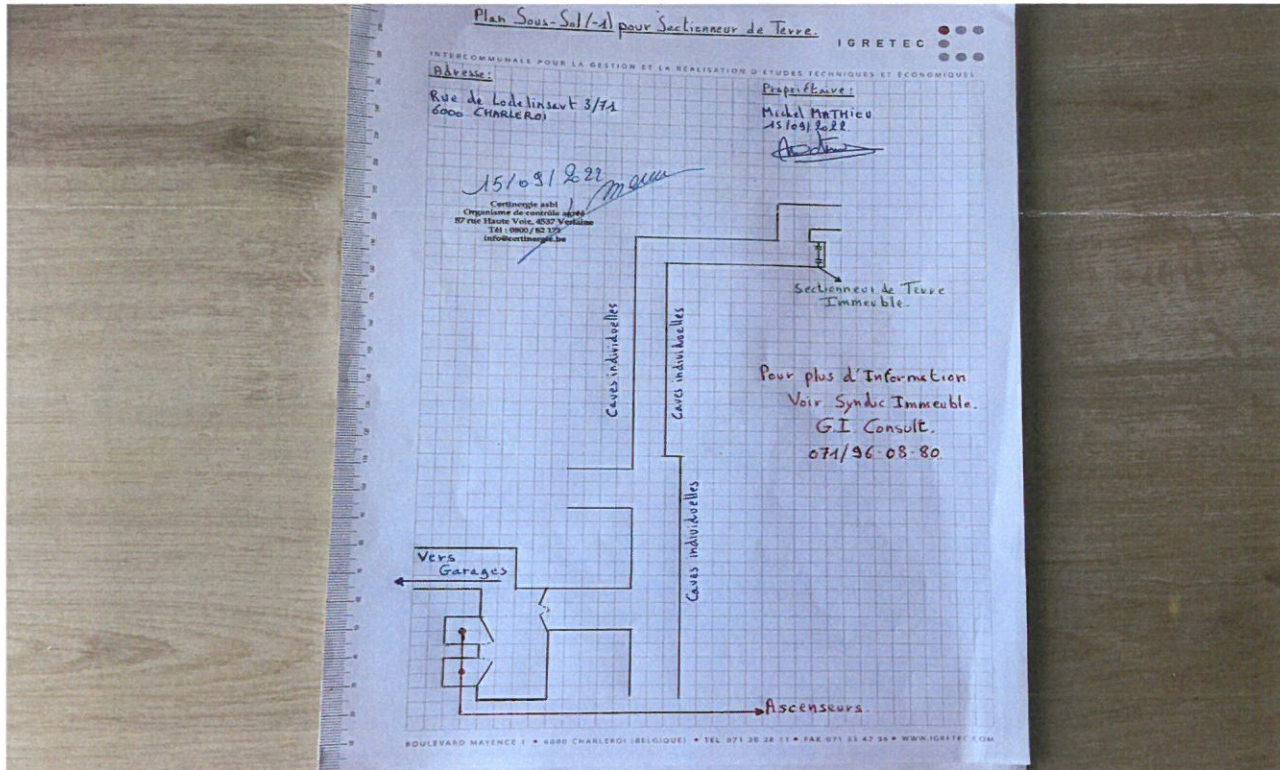 Plan Sous-Sol (-1) pour Sectionneur de Terre.
IGRETEC
INTERCOMMUNALE POUR LA GESTION ET LA RÉALISATION D'ÉTUDES TECHNIQUES ET ÉCONOMIQUES
Adresse:
Rue de Lodelinsart 3/71
6000 CHARLEROI
Propriétaire:
Michel MATHIEU
15/09/2022
15/09/2022
Certinergie asbl
Organisme de contrôle agréé
87 rue Haute Voie, 4537 Verlaine
Tél : 0800/82 172
info@certinergie.be
Sectionneur de Terre
Immeuble.
Caves individuelles
Caves individuelles
Pour plus d'Information
Voir Syndic Immeuble.
G.I. Consult.
071/96-08-80
Caves individuelles
Vers
Garages
Ascenseurs.
BOULEVARD MAYENCE 1 • 6000 CHARLEROI (BELGIQUE) • TEL 071 20 28 11 • FAX 071 33 47 36 • WWW.IGRETEC.COM